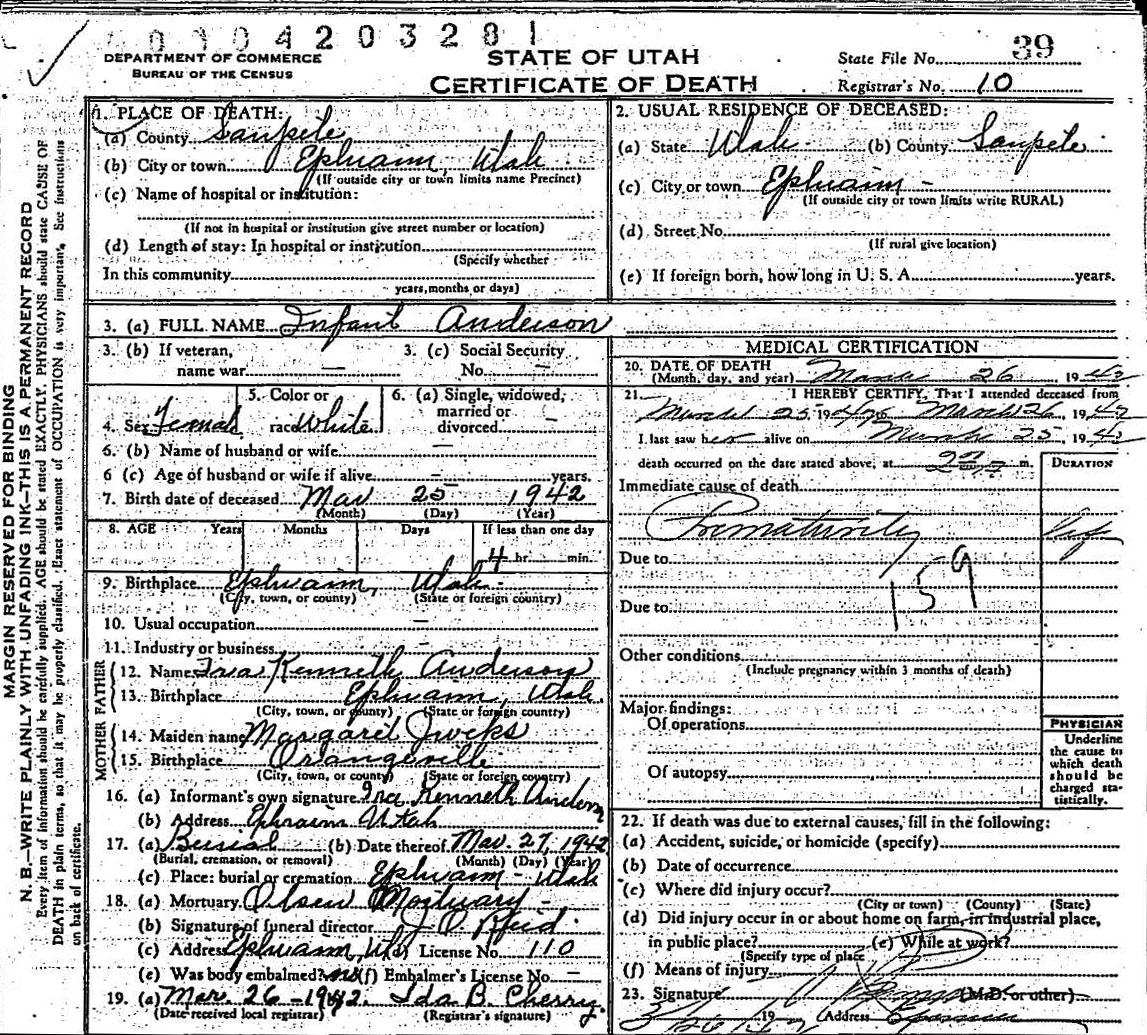 0104203281
DEPARTMENT OF COMMERCE
BUREAU OF THE CENSUS
STATE OF UTAH
CERTIFICATE OF DEATH
State File No. 39
Registrar's No. 10
MARGIN RESERVED FOR BINDING
N. B.—WRITE PLAINLY WITH UNFADING INK—THIS IS A PERMANENT RECORD
Every item of information should be carefully supplied. AGE should be stated EXACTLY. PHYSICIANS should state CAUSE OF
DEATH in plain terms, so that it may be properly classified. Exact statement of OCCUPATION is very important. See instructions
on back of certificate.
1. PLACE OF DEATH:
(a) County Sanpete
(b) City or town Ephraim, Utah
(If outside city or town limits name Precinct)
(c) Name of hospital or institution:
(If not in hospital or institution give street number or location)
(d) Length of stay: In hospital or institution
(Specify whether
In this community
years, months or days)
2. USUAL RESIDENCE OF DECEASED:
(a) State Utah (b) County Sanpete
(c) City or town Ephraim -
(If outside city or town limits write RURAL)
(d) Street No.
(If rural give location)
(e) If foreign born, how long in U. S. A. years.
3. (a) FULL NAME Infant Anderson
3. (b) If veteran,
name war —
3. (c) Social Security
No. —
4. Sex Female
5. Color or
race White
6. (a) Single, widowed,
married or
divorced —
6. (b) Name of husband or wife —
6 (c) Age of husband or wife if alive — years.
7. Birth date of deceased Mar 25 1942
(Month) (Day) (Year)
8. AGE Years Months Days If less than one day
4 hr. min.
9. Birthplace Ephraim, Utah -
(City, town, or county) (State or foreign country)
10. Usual occupation —
11. Industry or business
FATHER
12. Name Ira Kenneth Anderson
13. Birthplace Ephraim, Utah.
(City, town, or county) (State or foreign country)
MOTHER
14. Maiden name Margaret
15. Birthplace Orangeville
(City, town, or county) (State or foreign country)
16. (a) Informant's own signature Ira Kenneth
(b) Address Ephraim Utah
17. (a) Burial (b) Date thereof Mar. 27, 1942
(Burial, cremation, or removal) (Month) (Day) (Year)
(c) Place: burial or cremation Ephraim - Utah
18. (a) Mortuary Olsen Mortuary -
(b) Signature of funeral director
(c) Address Ephraim, Utah (d) License No. 110
(e) Was body embalmed? no (f) Embalmer's License No. —
19. (a) Mar. 26 - 1942. Ida B. Cherry
(Date received local registrar) (Registrar's signature)
MEDICAL CERTIFICATION
20. DATE OF DEATH
(Month, day, and year) March 26 1942
21. I HEREBY CERTIFY, That I attended deceased from
March 25 1942 to March 26, 1942
I last saw her alive on March 25, 1942
death occurred on the date stated above, at m.
DURATION
Immediate cause of death
Prematurity
Due to
159
Due to
Other conditions
(Include pregnancy within 3 months of death)
Major findings:
Of operations
Of autopsy
PHYSICIAN
Underline
the cause to
which death
should be
charged sta-
tistically.
22. If death was due to external causes, fill in the following:
(a) Accident, suicide, or homicide (specify)
(b) Date of occurrence
(c) Where did injury occur?
(City or town) (County) (State)
(d) Did injury occur in or about home on farm, in industrial place,
in public place? (e) While at work?
(Specify type of place
(f) Means of injury
23. Signature (M.D. or other)
3/26 1942 (Address